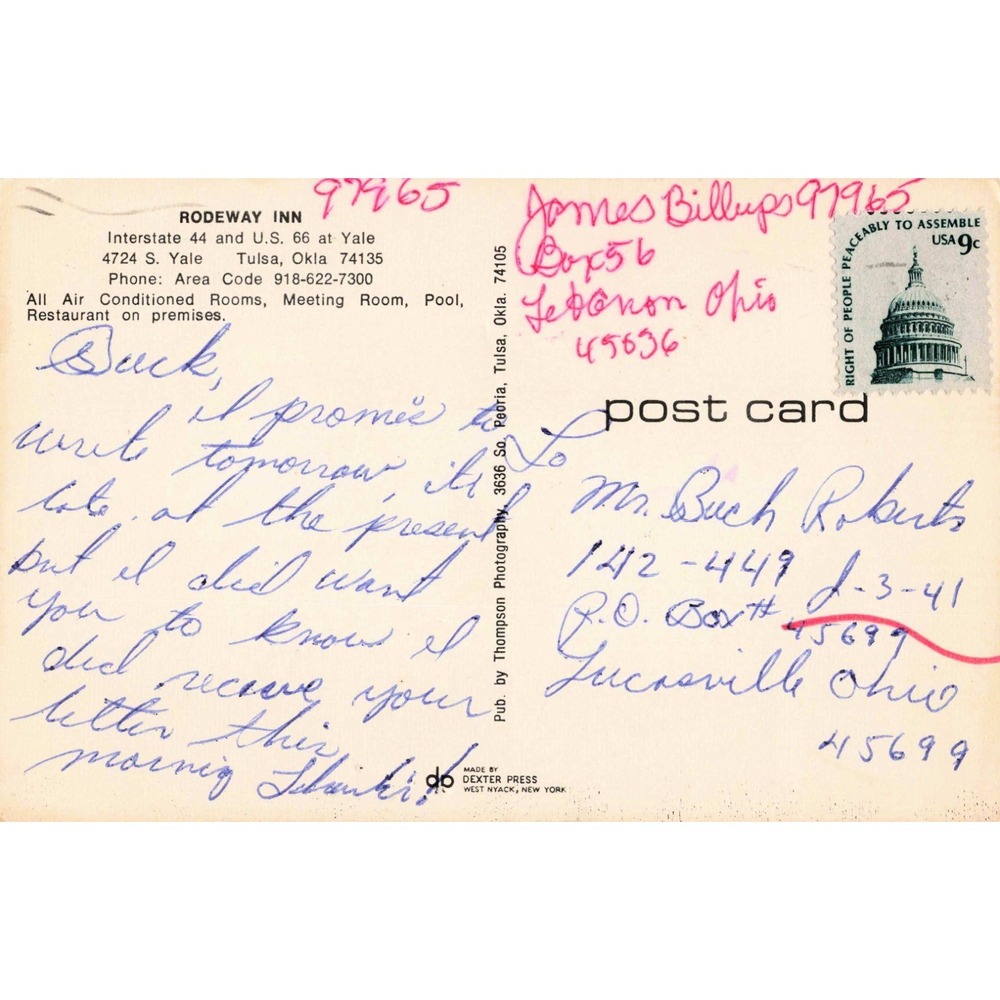 97965
RODEWAY INN
Interstate 44 and U.S. 66 at Yale
4724 S. Yale Tulsa, Okla 74135
Phone: Area Code 918-622-7300
All Air Conditioned Rooms, Meeting Room, Pool,
Restaurant on premises.
Buck,
I promise to
write tomorrow, its
late at the present
but I did want
you to know I
did receive your
letter this
morning Thanks!
Pub. by Thompson Photography, 3636 So. Peoria, Tulsa, Okla. 74105
db
MADE BY
DEXTER PRESS
WEST NYACK, NEW YORK
James Billups 97965
Box 56
Lebanon Ohio
45036
RIGHT OF PEOPLE PEACEABLY TO ASSEMBLE
USA 9c
post card
To
Mr. Buck Roberts
142-449 J-3-41
P.O. Box # 45699
Lucasville Ohio
45699